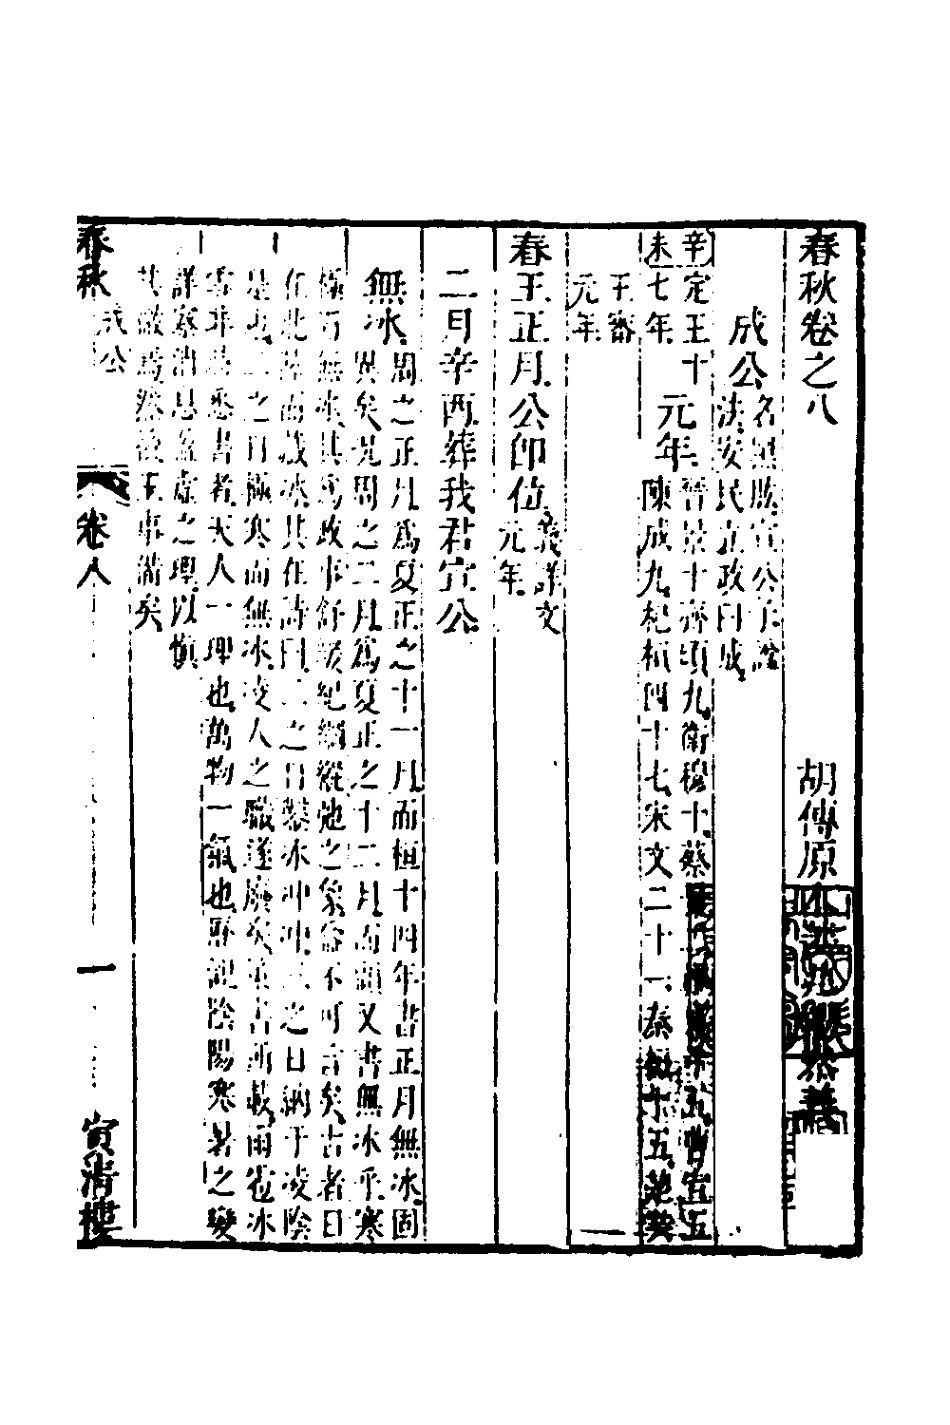 春秋卷之八
胡傳原本
成公
名黑肱宣公子諡
法安民立政曰成
辛定王十
未七年
元年
晉景十齊頃九衛穆十蔡
陳成九杞桓四十七宋文二十一秦桓十五楚
王審
元年
春王正月公即位
義詳文
元年
二月辛酉葬我君宣公
無冰
周之正月爲夏正之十一月而桓十四年書正月無冰固
異矣況周之二月爲夏正之十二月而顧又書無冰乎寒
極而無冰其爲政事舒緩紀綱縱弛之象益不可言矣古者日
在北陸而藏冰其在詩曰二之日鑿冰沖沖三之日納于凌陰
是也二之日極寒而無冰凌人之職遂廢矣 書所載雨雹冰
雪非 悉書者天人一理也萬物一氣也 陰陽寒暑之變
詳察消息盈虛之理以愼
其微爲然後王事備矣
春秋
成公
卷八
一
寅清樓